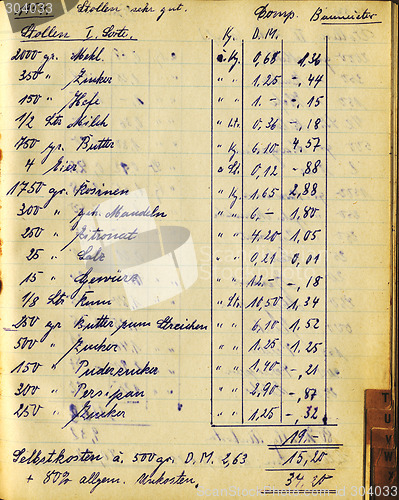 304033
304033
Stollen sehr gut. Comp. Baumeister
Stollen I. Sorte. Kg. D.M.
2000 gr. Mehl. a Kg. 0,68 1,36
350 " Zucker " " 1,25 -,44
150 " Hefe " " 1.- -,15
1/2 Ltr Milch " Ltr. 0,36 -,18
750 gr. Butter " Kg. 6,10 4,57
4 Eier a St. 0,12 -,88
1750 gr. Rosinen " Kg. 1,65 2,88
300 " Mandeln " " 6,- 1,80
250 " Zitronat " " 4,20 1,05
25 " Salz " " 0,21 0,01
15 " Gewürz " " 12,- -,18
1/8 Ltr Rum " Ltr. 10,50 1,34
250 gr Butter zum Streichen " " 6,10 1,52
500 " Zucker " " 1,25 1,25
150 " Puderzucker " " 1,40 -,21
300 " Persipan " " 2,90 -,87
250 " Zucker " " 1,25 -,32
19.
Selbstkosten á. 500 gr. D.M. 2,63 15,20
+ 80% allgem. Unkosten. 34,20
T U V W
304033